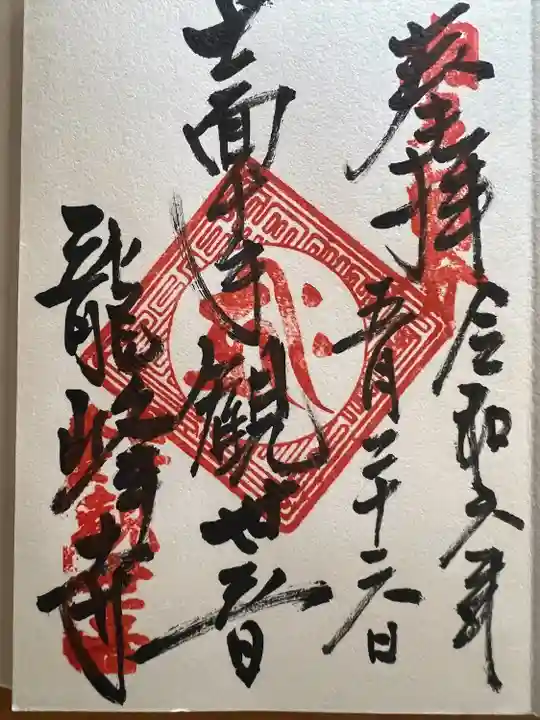 奉拝
令和元年
五月二十六日
十一面千手観世音
龍峰寺